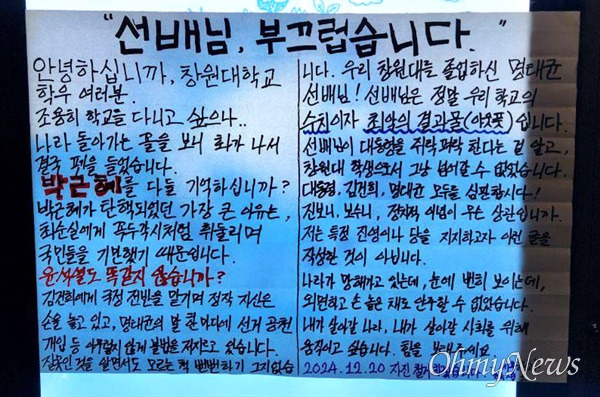 "선배님, 부끄럽습니다."
안녕하십니까, 창원대학교
학우 여러분.
조용히 학교를 다니고 싶으나..
나라 돌아가는 꼴을 보니 화가 나서
결국 펜을 들었습니다.
박근혜를 다들 기억하십니까?
박근혜가 탄핵되었던 가장 큰 이유는,
최순실에게 꼭두각시처럼 휘둘리며
국민들을 기만했기 때문입니다.
윤석열도 똑같지 않습니까?
김건희에게 국정 전반을 맡기며 정작 자신은
손을 놓고 있고, 명태균의 말 한마디에 선거 공천
개입 등 아무렇지 않게 불법을 저지르고 있습니다.
잘못인 것을 알면서도 모르는 척 뻔뻔하기 그지없습
니다. 우리 창원대를 졸업하신 명태균
선배님! 선배님은 정말 우리 학교의
수치이자 최악의 결과물(아웃풋)입니다.
선배님이 대통령을 쥐락펴락 한다는 걸 알고,
창원대 학생으로서 그냥 넘어갈 수 없었습니다.
대통령, 김건희, 명태균 모두를 심판합시다!
진보니, 보수니, 정치적 이념이 무슨 상관입니까.
저는 특정 진영이나 당을 지지하고자 이런 글을
작성한 것이 아닙니다.
나라가 망해가고 있는데, 눈에 뻔히 보이는데,
외면하고 손 놓은 채로 안주할 수 없었습니다.
내가 살아갈 나라, 내가 살아갈 사회를 위해
움직이고 싶습니다. 힘을 보내주세요
2024.12.20
OhmyNews